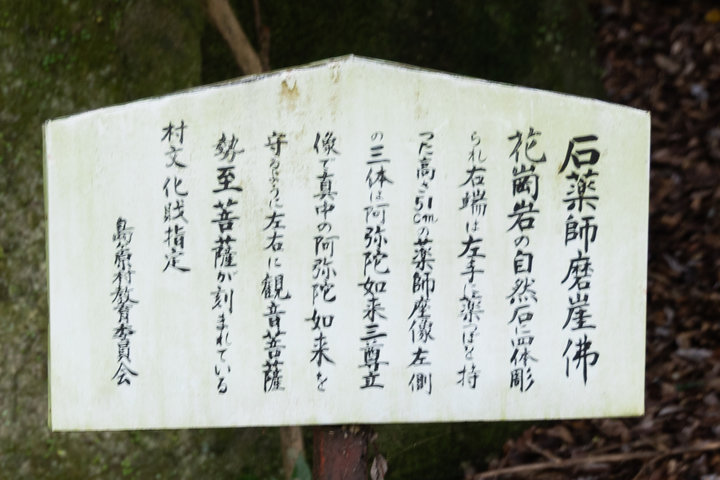 石薬師磨崖佛
花崗岩の自然石に四体彫
られ右端は左手に薬つぼを持
つた高さ51cmの薬師座像左側
の三体は阿弥陀如来三尊立
像で真中の阿弥陀如来を
守るように左右に観音菩薩
勢至菩薩が刻まれている
村文化財指定
島原村教育委員会